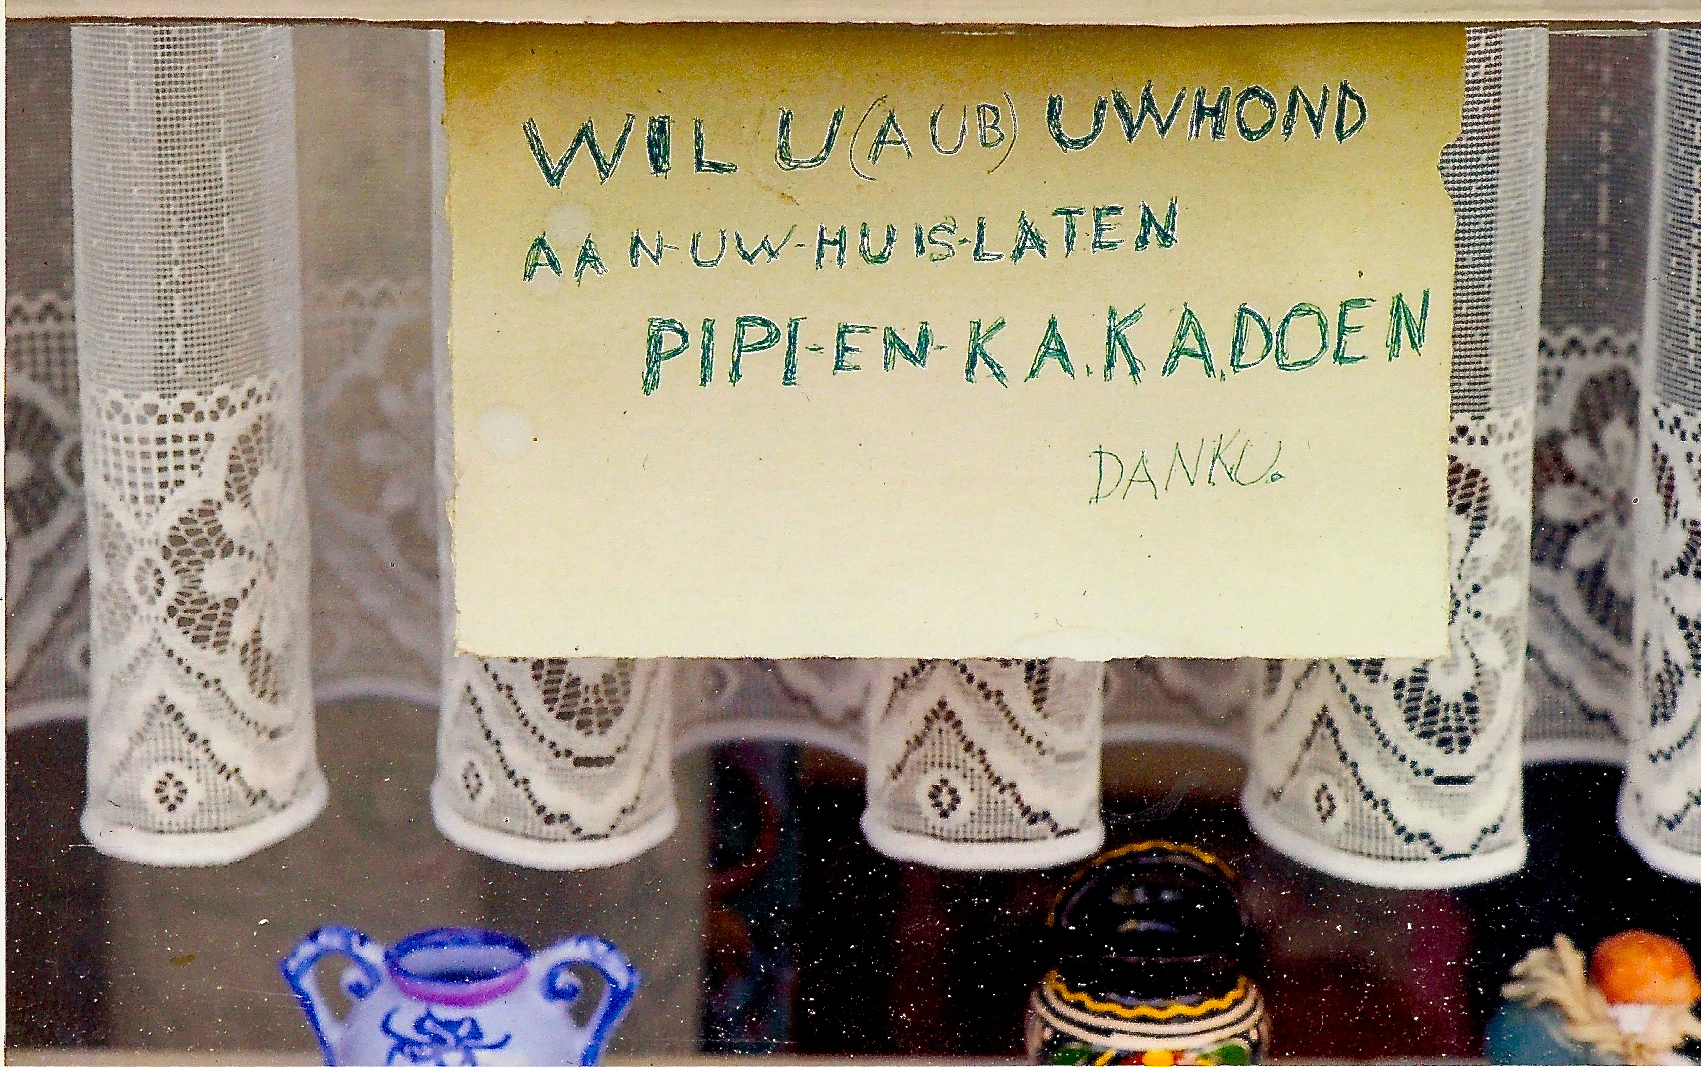 WIL U (AUB) UW HOND
AAN-UW-HUIS-LATEN
PIPI-EN-KA.KA.DOEN
DANKU.